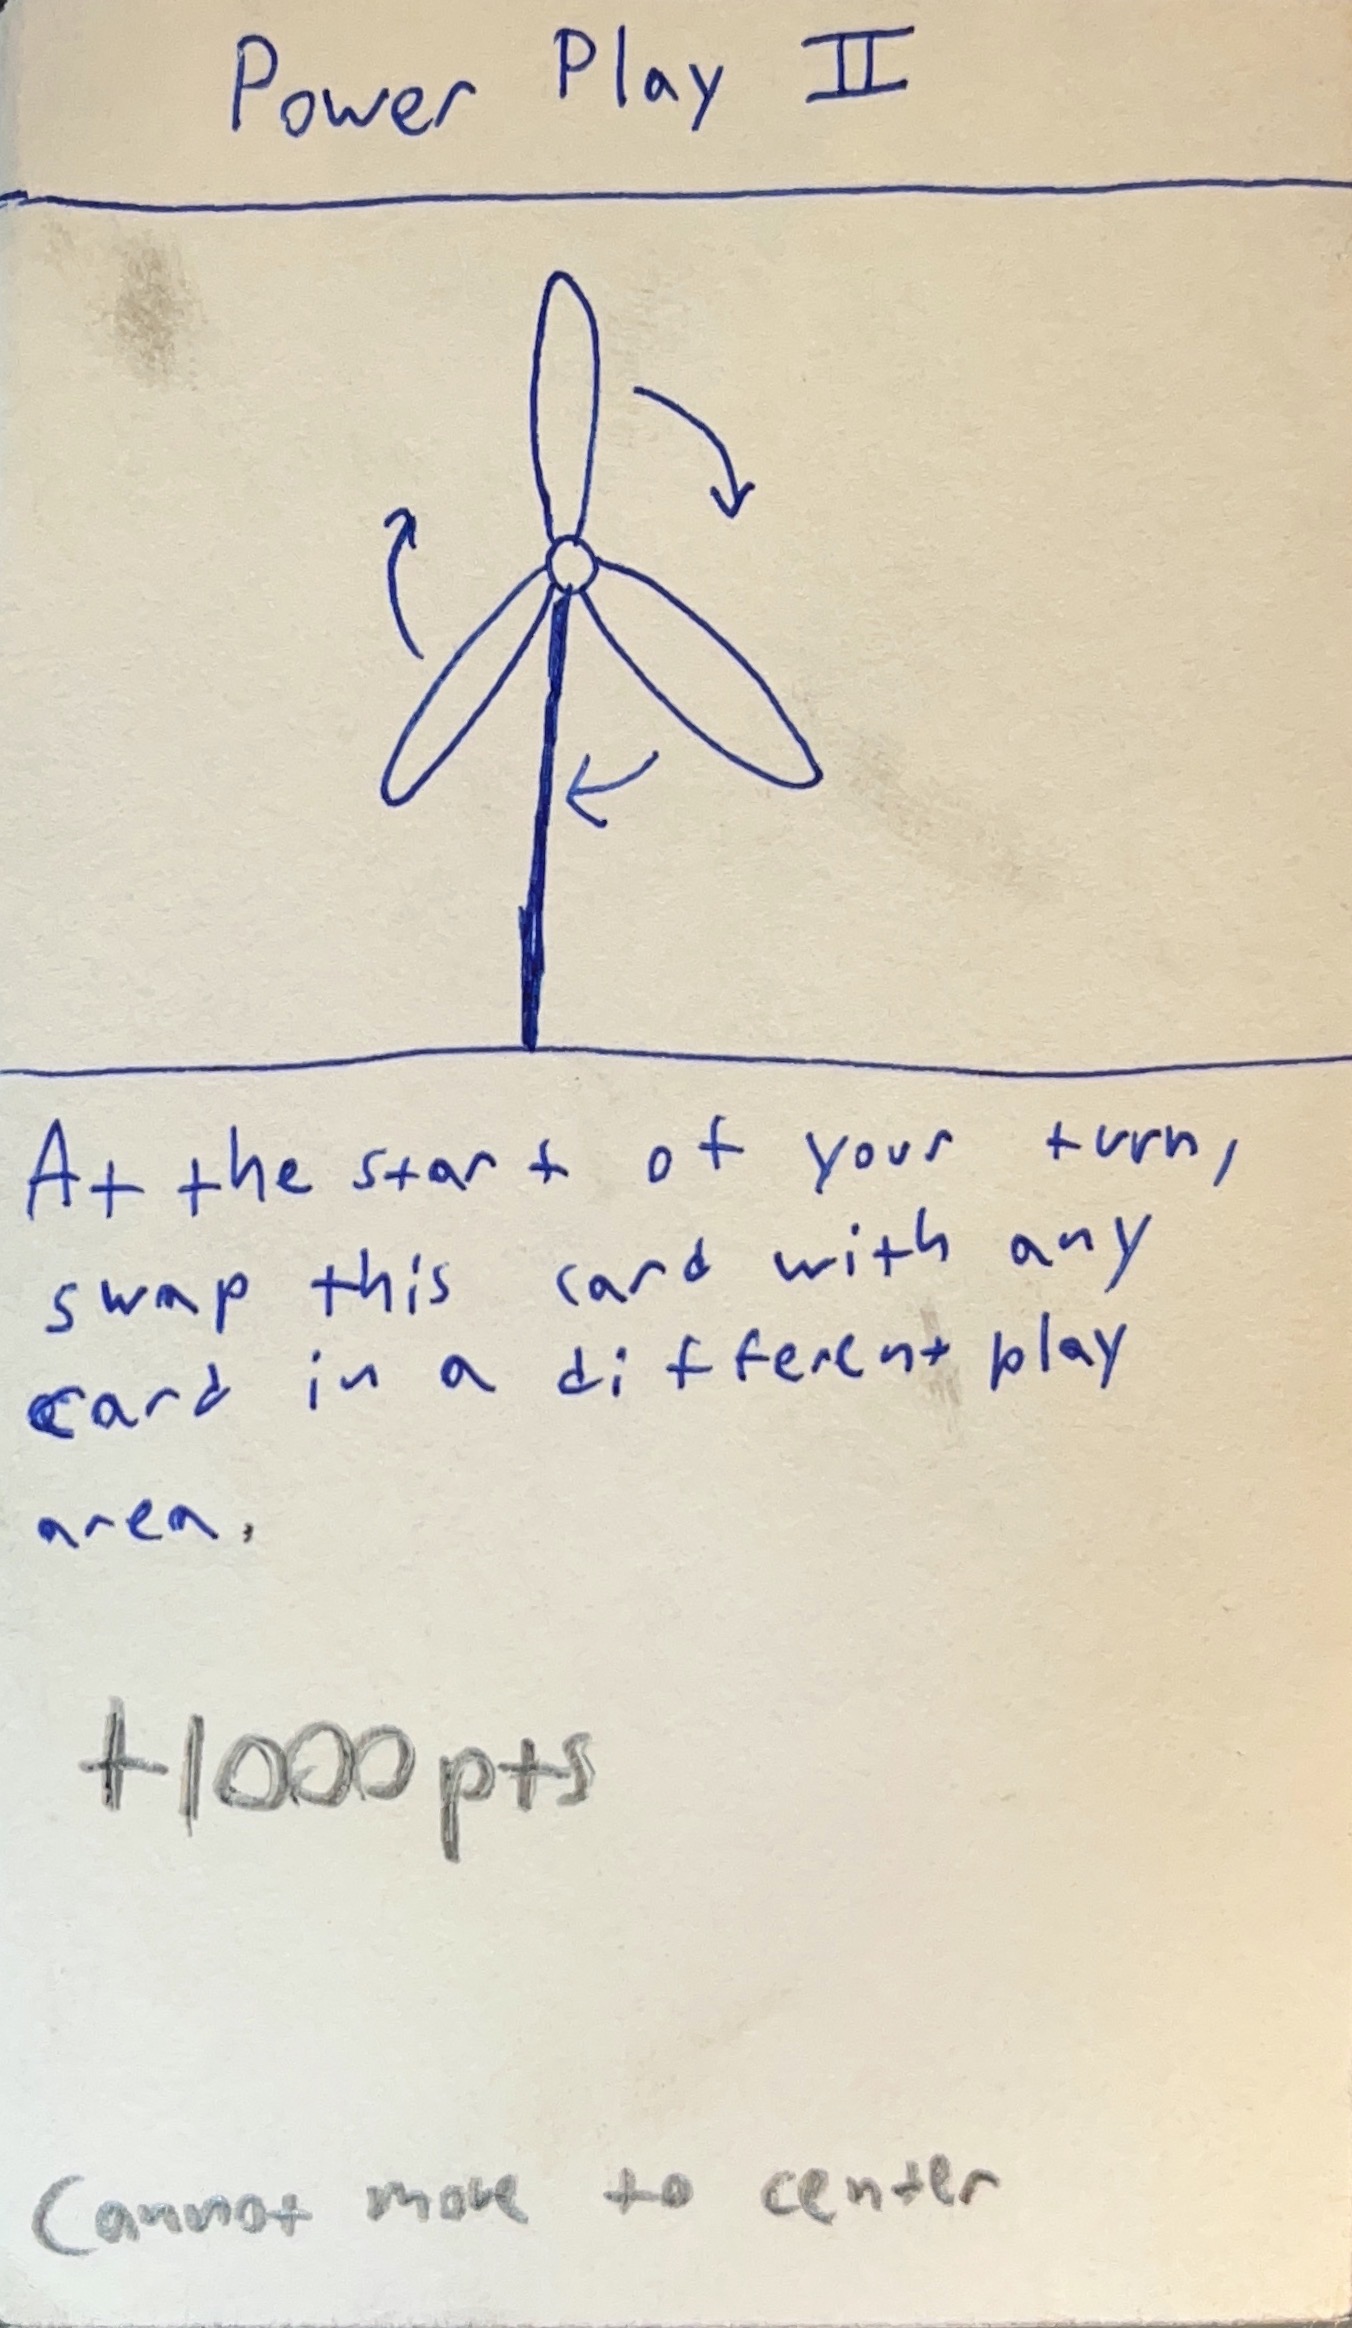 Power Play II
At the start of your turn,
swap this card with any
card in a different play
area.
+1000pts
Cannot move to center